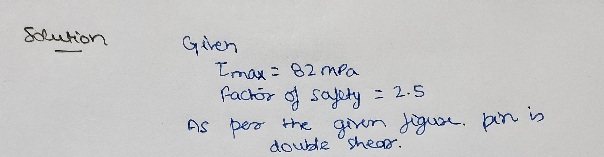 Solution
Given
τmax = 82 mPa
factor of safety = 2.5
As per the given figure. pin is
double shear.